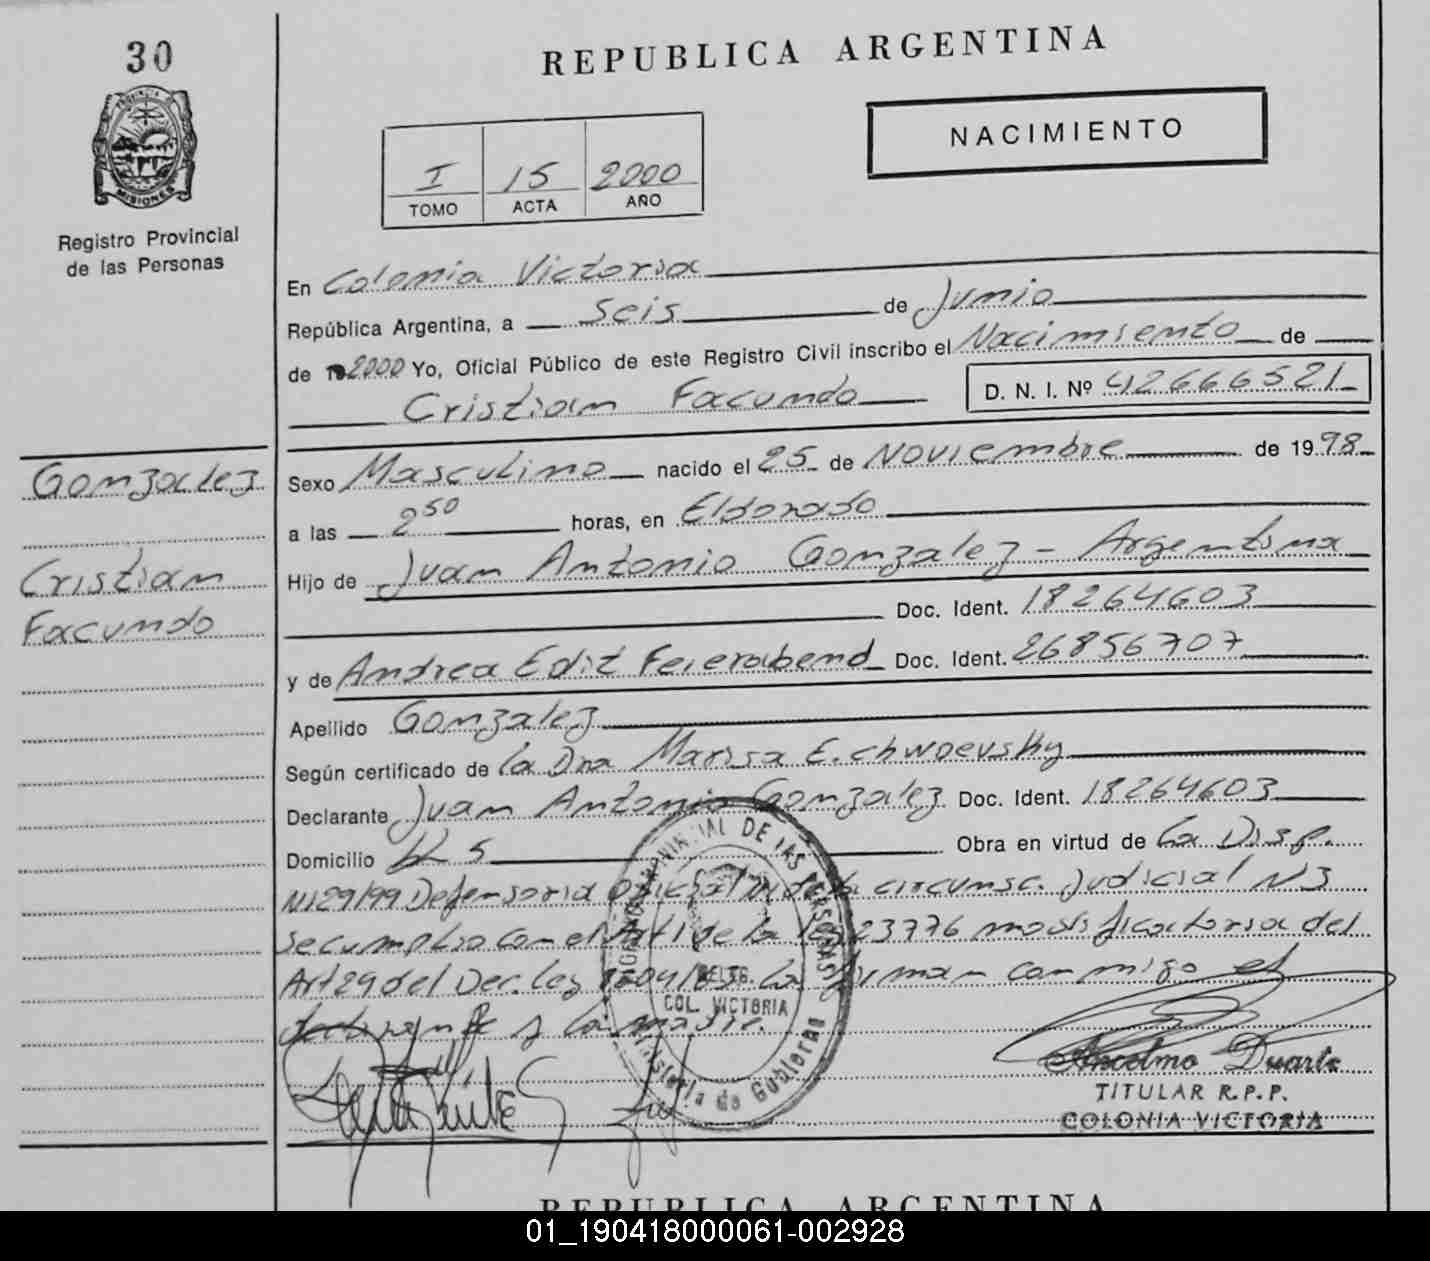 30
REPUBLICA ARGENTINA
PROVINCIA DE
MISIONES
Registro Provincial
de las Personas
NACIMIENTO
I 15 2000
TOMO ACTA AÑO
En Colonia Victoria
República Argentina, a seis de Junio
de 2000 Yo, Oficial Público de este Registro Civil inscribo el Nacimiento de
Cristian Facundo D. N. I. Nº 42666521
Gonzalez
Cristian
Facundo
Sexo Masculino nacido el 25 de Noviembre de 1998
a las 2 50 horas, en Eldorado
Hijo de Juan Antonio Gonzalez - Argentina
Doc. Ident. 18264603
y de Andrea Edit Feierabend Doc. Ident. 26856707
Apellido Gonzalez
Según certificado de la Dra Marisa E.
Declarante Juan Antonio Gonzalez Doc. Ident. 18264603
Domicilio Obra en virtud de la Disp.
N129/99 Defensoria Oficial circunsc. Judicial N3
se cumplio con el Art 1 de la ley 23776 modificatoria del
Art 29 del Dec. Ley firman conmigo el
y la madre.
PROVINCIAL DE LAS PERSONAS
DELEG.
COL. VICTORIA
Ministerio de Gobierno
Ancelmo Duarte
TITULAR R.P.P.
COLONIA VICTORIA
REPUBLICA ARGENTINA
01_190418000061-002928